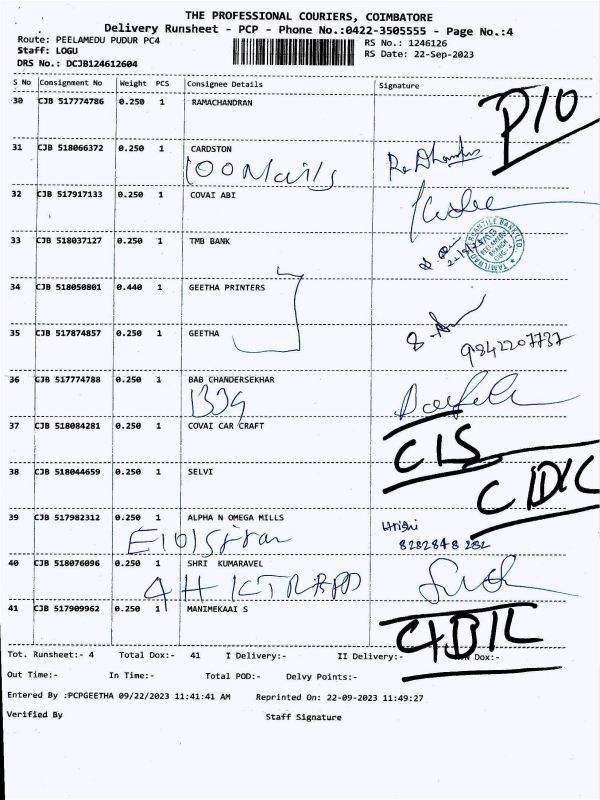 THE PROFESSIONAL COURIERS, COIMBATORE
Delivery Runsheet - PCP - Phone No.:0422-3505555 - Page No.:4
Route: PEELAMEDU PUDUR PC4 RS No.: 1246126
Staff: LOGU RS Date: 22-Sep-2023
DRS No.: DCJB124612604
S No Consignment No Weight PCS Consignee Details Signature
30 CJB 517774786 0.250 1 RAMACHANDRAN
31 CJB 518066372 0.250 1 CARDSTON
32 CJB 517917133 0.250 1 COVAI ABI
33 CJB 518037127 0.250 1 TMB BANK
34 CJB 518050801 0.440 1 GEETHA PRINTERS
35 CJB 517874857 0.250 1 GEETHA
9842207737
36 CJB 517774788 0.250 1 BAB CHANDERSEKHAR
37 CJB 518084281 0.250 1 COVAI CAR CRAFT
38 CJB 518044659 0.250 1 SELVI
39 CJB 517982312 0.250 1 ALPHA N OMEGA MILLS
40 CJB 518076096 0.250 1 SHRI KUMARAVEL
41 CJB 517909962 0.250 1 MANIMEKAAI S
Tot. Runsheet:- 4 Total Dox:- 41 I Delivery:- II Delivery:- Dox:-
Out Time:- In Time:- Total POD:- Delvy Points:-
Entered By :PCPGEETHA 09/22/2023 11:41:41 AM Reprinted On: 22-09-2023 11:49:27
Verified By Staff Signature